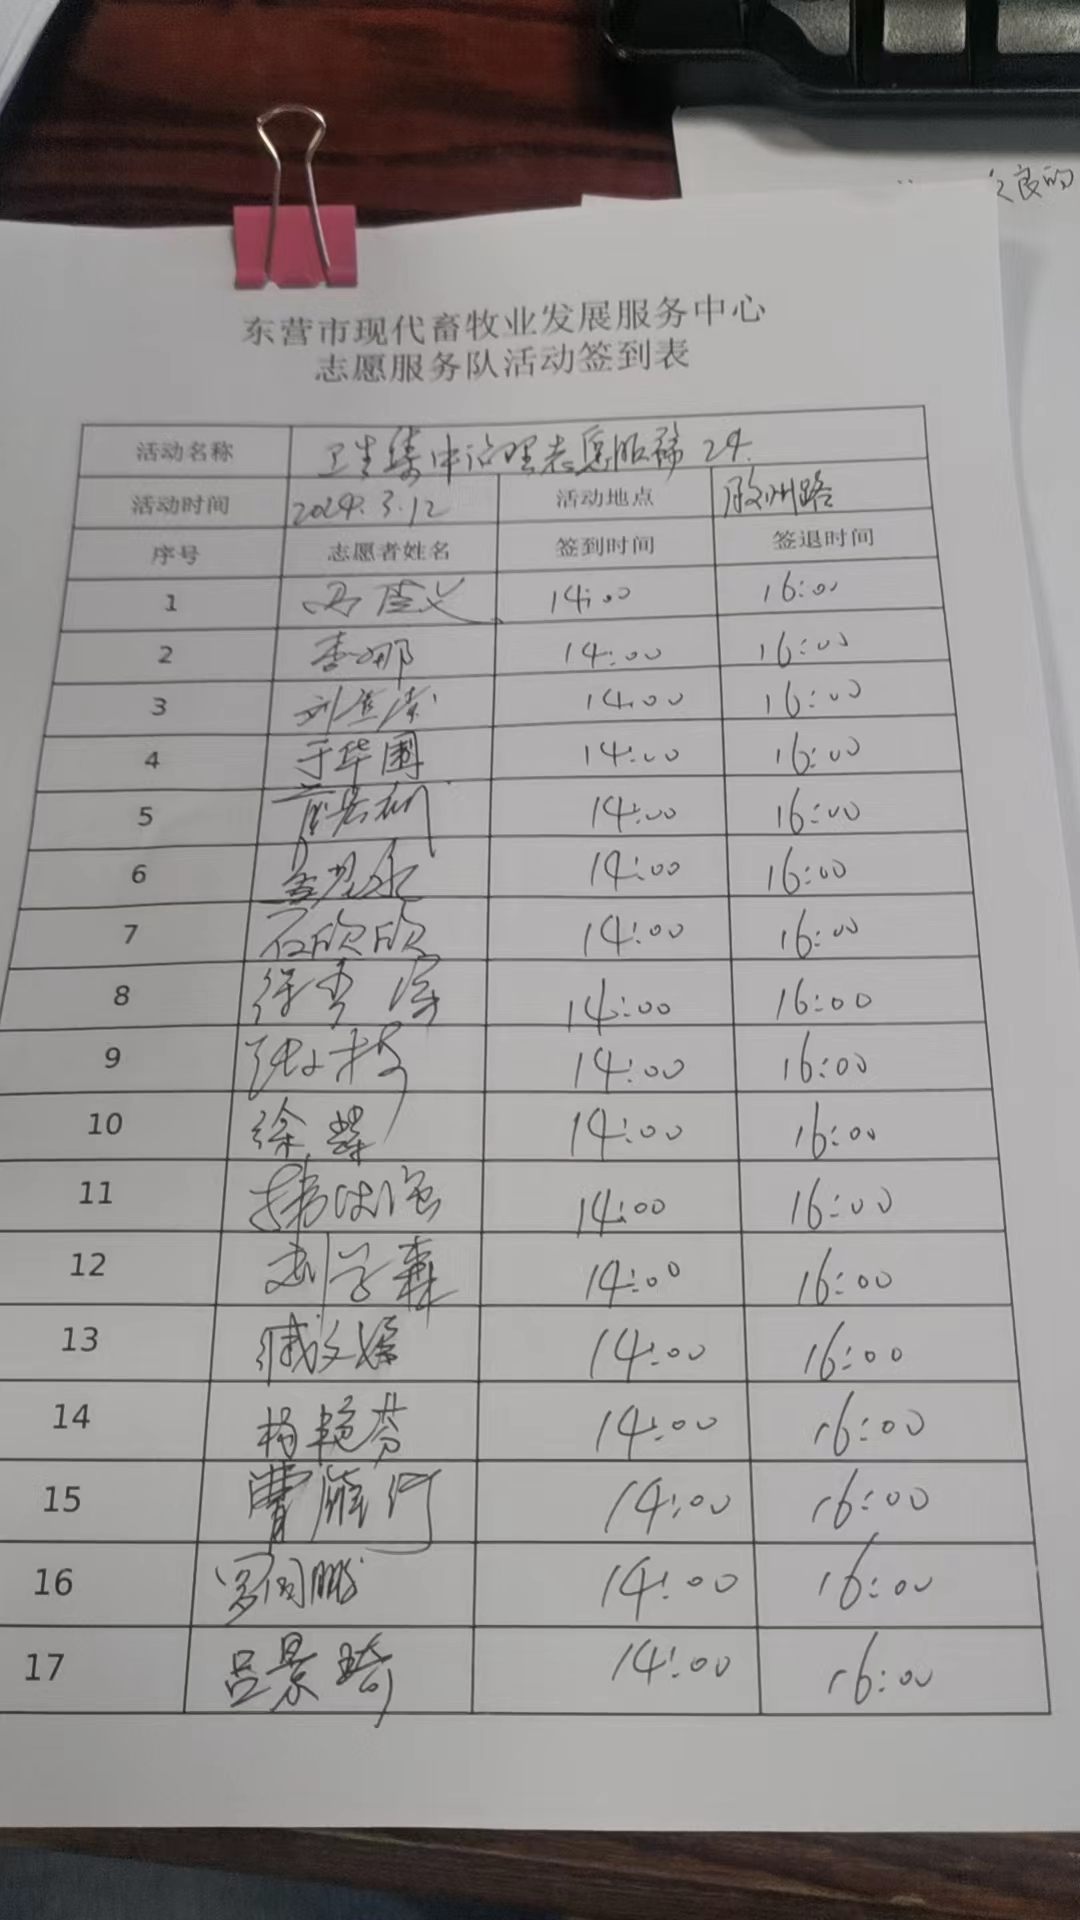 良的
东营市现代畜牧业发展服务中心
志愿服务队活动签到表
活动名称 卫生集中治理志愿服务 24.
活动时间 2024.3.12 活动地点 胶州路
序号 志愿者姓名 签到时间 签退时间
1 14:00 16:00
2 李娜 14:00 16:00
3 14:00 16:00
4 于华国 14:00 16:00
5 14:00 16:00
6 14:00 16:00
7 石欣欣 14:00 16:00
8 14:00 16:00
9 14:00 16:00
10 徐慧 14:00 16:00
11 14:00 16:00
12 刘学森 14:00 16:00
13 臧文婷 14:00 16:00
14 杨艳芬 14:00 16:00
15 14:00 16:00
16 14:00 16:00
17 吕景琦 14:00 16:00